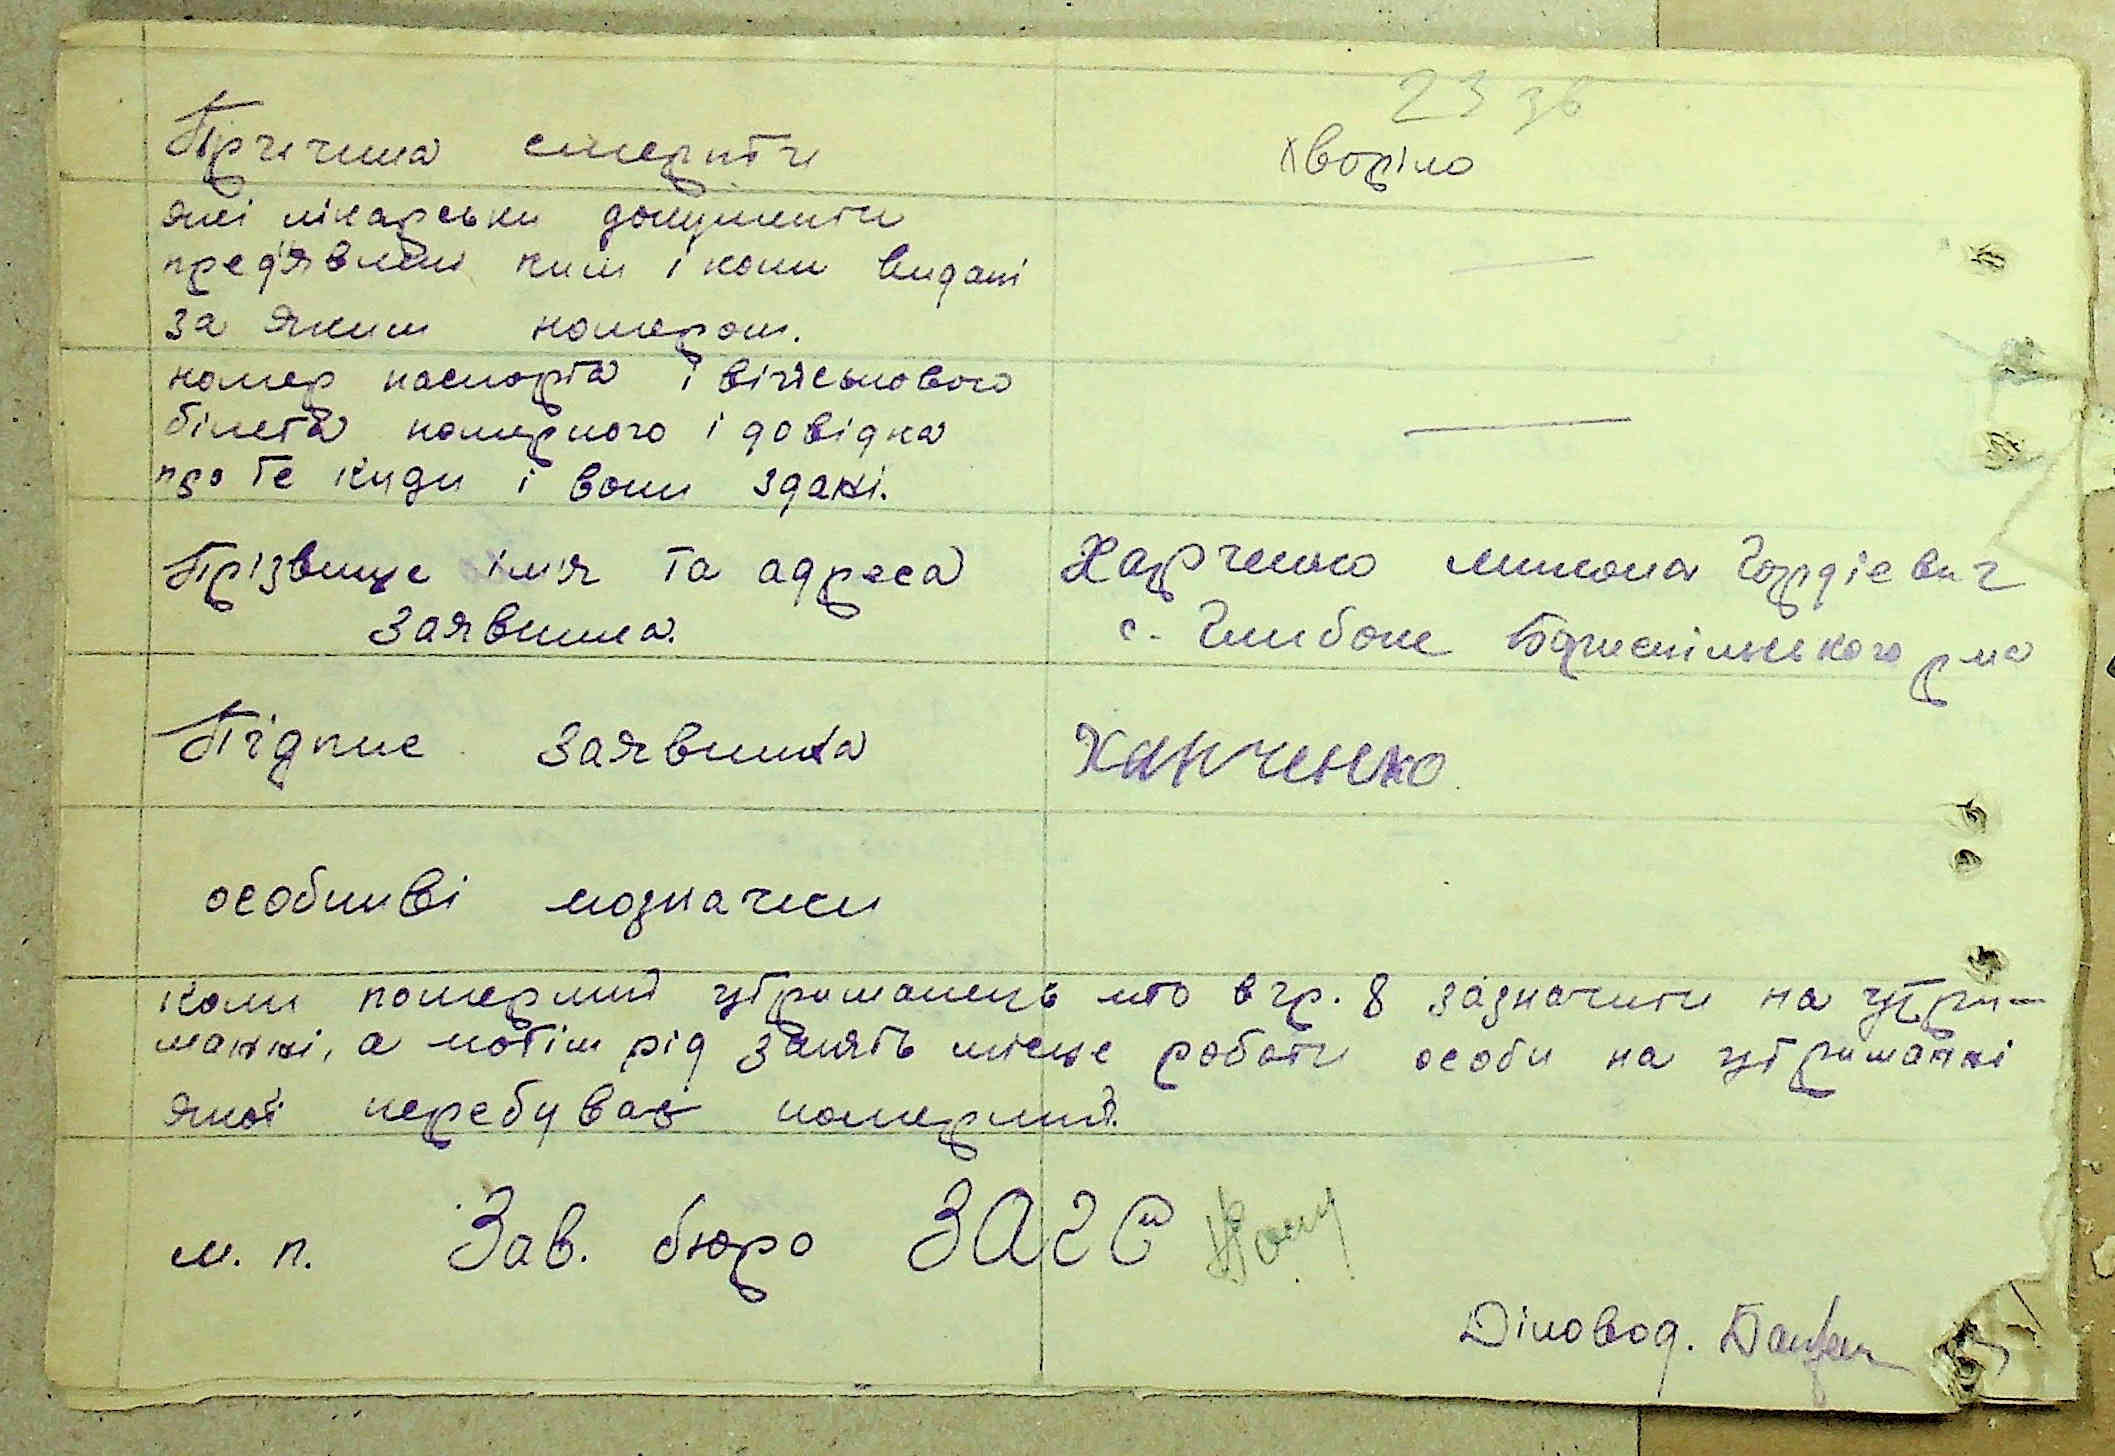 23 зв
Причина смерти хворіло
які лікарськи документи
пред'явлені ким і коли видані
за яким номером.
номер паспорта і військового
білета номерного і довідка
про те куди і вони здані.
Прізвище ім'я та адреса Харченко Микола Гордієвич
Заявника. с. Глибоке Бориспільського р-на
Підпис Заявника Харченко
особливі позначки
коли померлий утриманець що в гр. 8 зазначити на утри-
манні, а потім рід занять місце роботи особи на утриманні
якої перебував померлий.
м. п. Зав. бюро ЗАГС
Діловод.